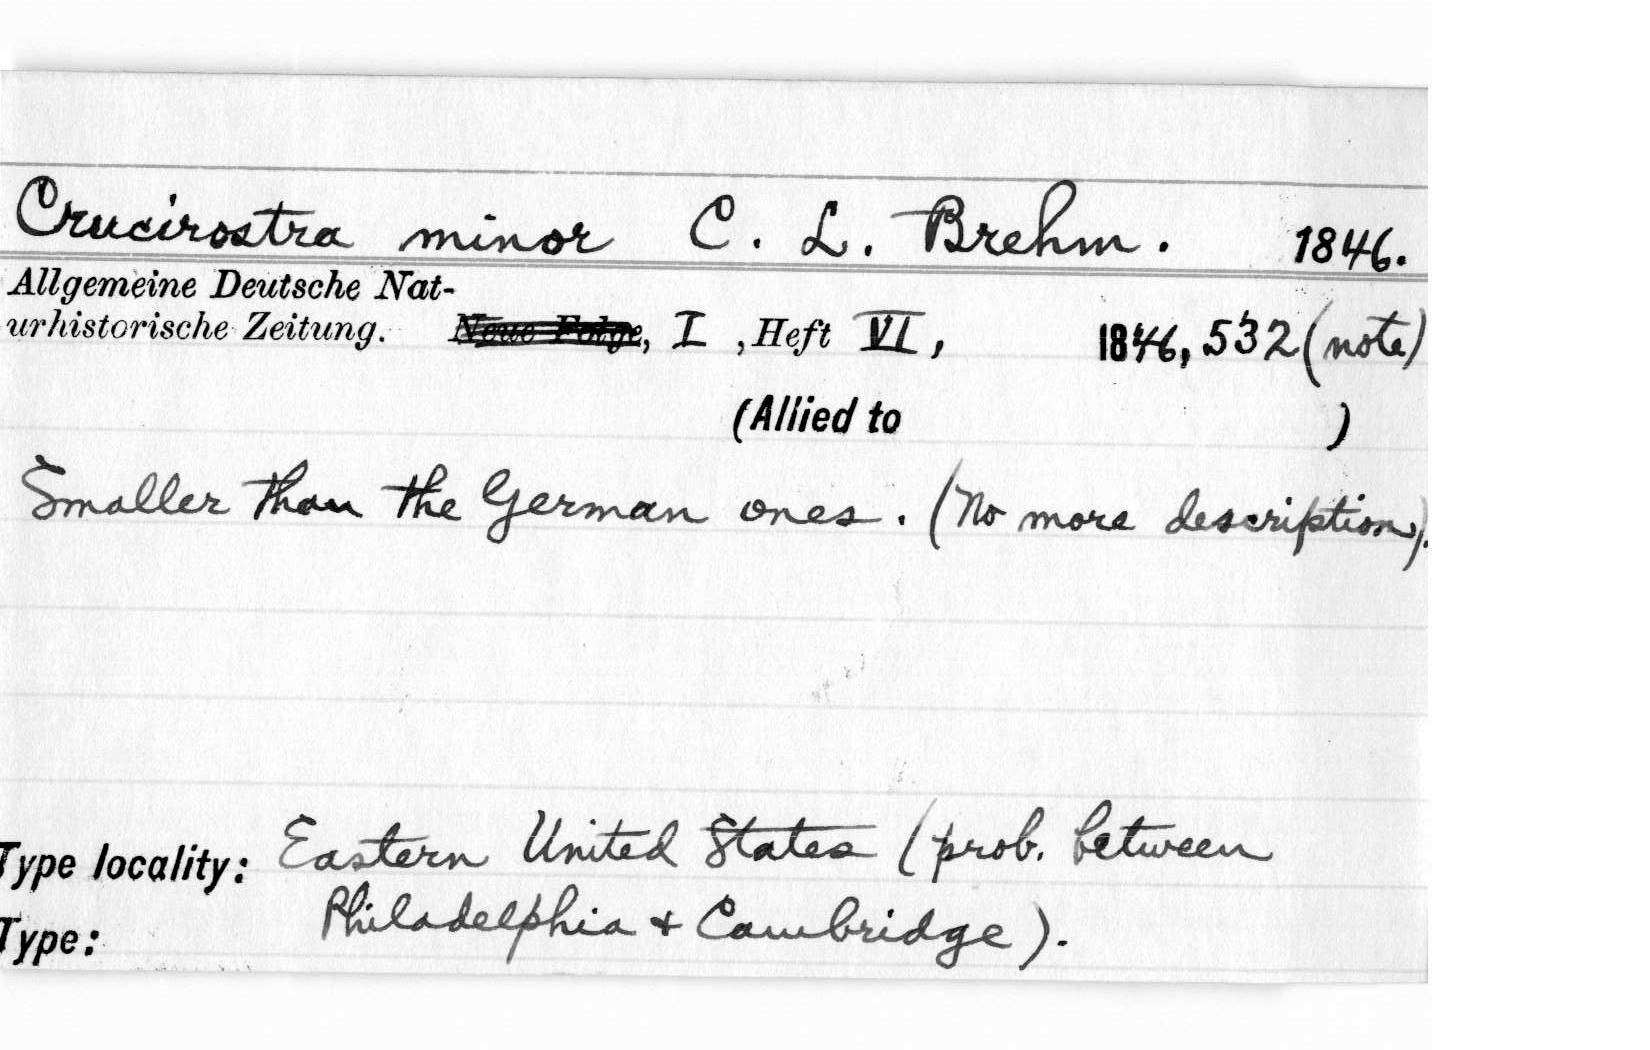 Crucirostra minor C. L. Brehm. 1846.
Allgemeine Deutsche Nat-
urhistorische Zeitung. Neue Folge, I , Heft VI, 1846, 532 (note)
(Allied to )
Smaller than the German ones. (No more description).
Type locality: Eastern United States (prob. between
Philadelphia + Cambridge).
Type: